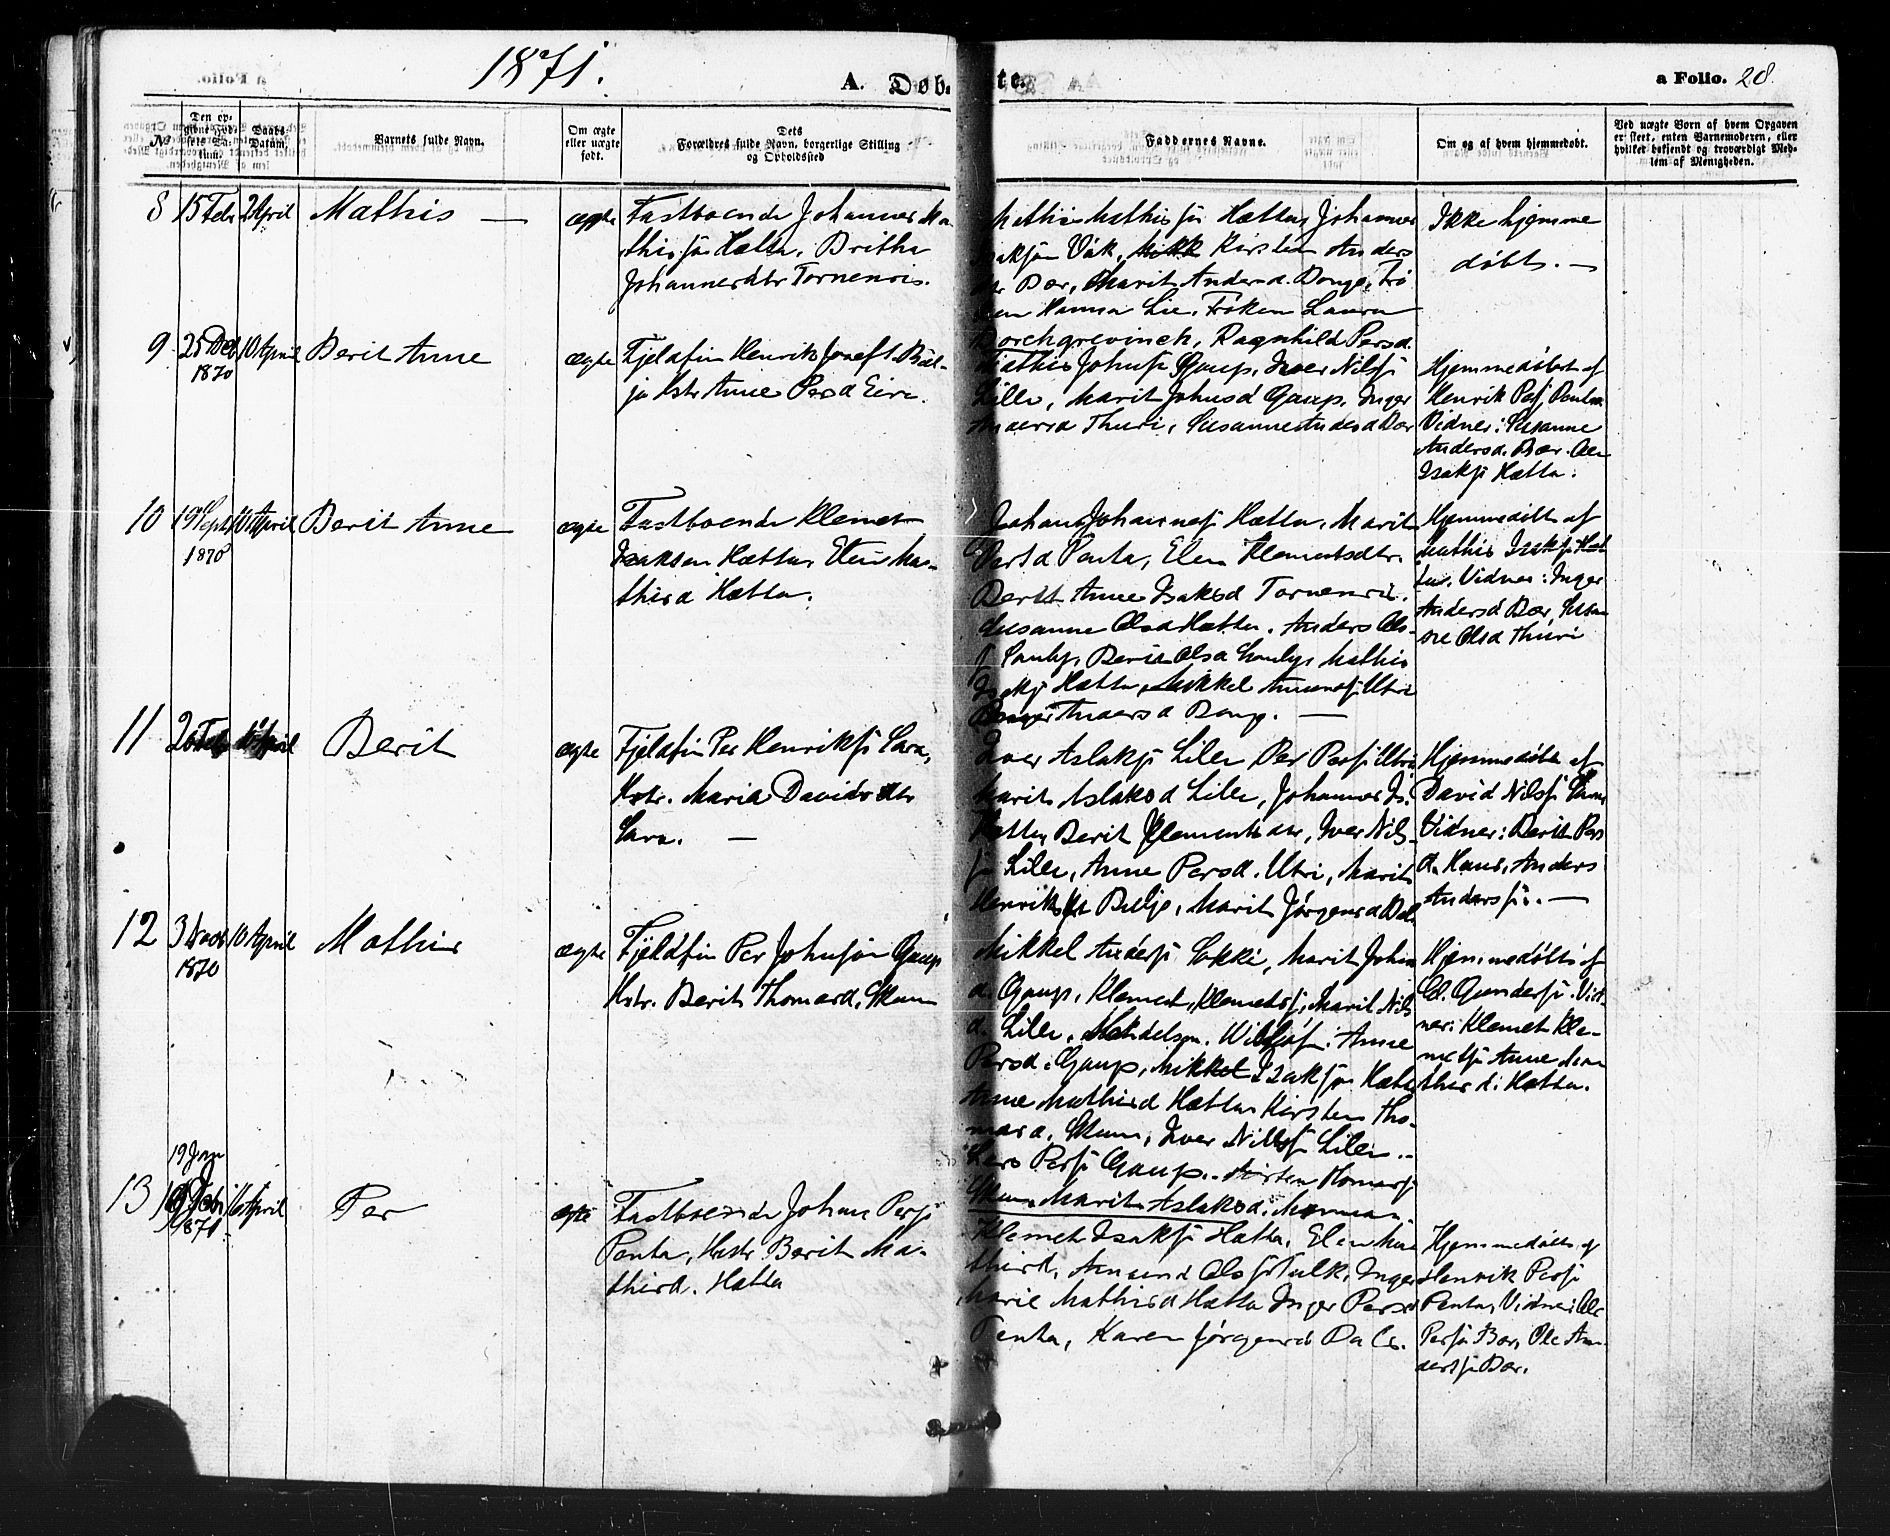 1871.
A. Døbte.
a Folio. 28.
No
Den opgivne Fødselsdatum.
Daabsdatum.
Barnets fulde Navn.
Om ægte eller uægte født.
Dets Forældres fulde Navn, borgerlige Stilling og Opholdssted
Faddernes Navne.
Om og af hvem hjemmedøbt.
Ved uægte Børn af hvem Opgaven er skeet, enten Barnemoderen, eller hvilket bekjendt og troværdigt Medlem af Menigheden.
8 15 Feb 2 April Mathis — ægte
Fastboende Johannes Ma-
thissøn Hætta, Britha
Johannesdtr Tornensis.
Mathis Mathissøn Hætta, Johannes
Isaksøn Vák, Kirsten Anders
dtr Bær, Marit Andersd. Bongo, Frø
ken Hanna Lie, Frøken Laura
Borchgrevinck, Ragnhild Persd.
Ikke hjemme
døbt. —
9 25 Dec 1870 10 April Berit Anne ægte
Fjeldfin Henrik Josefs. Bul-
jo Hstr Anne Persd Eira.
Mathis Johnssø Gaup, Iver Nilssø
Lille, Marit Johnsd Gaup, Inger
Andersd Thuri, Susanne Andersd Bær
Hjemmedøbt af
Henrik Perss. Penta.
Vidner: Susanne
Andersd. Bær. Ole
Isaksø Hætta.
10 19 Sept 1870 10 April Berit Anne ægte
Fastboende Klemet
Isaksen Hætta, Elen Ma-
thisd Hætta.
Johan Johannesø Hætta, Marit
Persd Penta, Elen Klemetsdtr.
Berit Anne Isaksd Tornensis.
Susanne Olsd Hætta, Anders Ols-
sø Somby, Berit Olsd Somby, Mathis
Isaksø Hætta, Mikkel Amundsø Utsi
Inger Andersd Bongo. —
Hjemmedøbt af
Mathis Isaksø Hæt
ta. Vidner: Inger
Andersd Bær, Susan
ne Olsd Thuri
11 10 April Berit ægte
Fjeldfin Per Henriksø Sara,
Hstr. Maria Davidsdtr
Sara. —
Iver Aslaksø Lille Per Persø Utsi
Marit Aslaksd Lille, Johannes Is.
Hætta, Berit Klementsdtr, Iver Nils-
sø Lille, Anne Persd. Utsi, Marit
Henriksdt Buljo, Marit Jørgensd Dal.
Hjemmedøbt af
David Nilssø Sara
Vidner: Berit Pers
d. Anders
Anderssø. —
12 3 Novb 1870 10 April Mathis ægte
Fjeldfin Per Johnsøn Gaup
Hstr. Berit Thomasd. Skum
Mikkel Anderssø Sokki, Marit John
d. Gaup, Klemet Klemetsø, Marit Nils
d. Lille, Handelsm. Anne
Persd. Gaup, Mikkel Isaksøn Hætta
Anne Mathisd Hætta Kirsten Tho-
masd. Skum, Iver Nilssø Lille.
Lars Perssø Gaup. Thomassø
Skum, Marit Aslaksd.
Hjemmedøbt af
Ed. Gundersø. Vid-
ner: Klemet Kle-
metsø Anne Ma-
thisd: Hætta.
13 19 Jan 1871 16 April Per ægte
Fastboende Johan Perssø
Penta, Hstr Berit Ma-
thisd. Hætta
Klemet Isaksø Hætta, Elen Ma
thisd, Amund Olssø Tulk, Inger
Marie Mathisd Hætta Inger Persd
Penta, Karen Jørgensd Dal.
Hjemmedøbt af
Henrik Perssø
Penta, Vidner: Ole
Perssø Bær, Ole An-
derssø Bær.